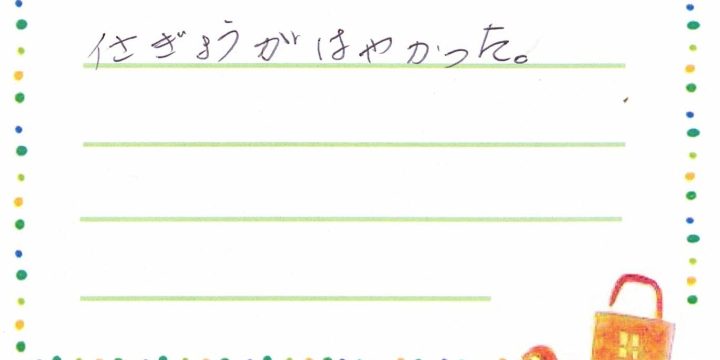 イさぎょうがはやかった。